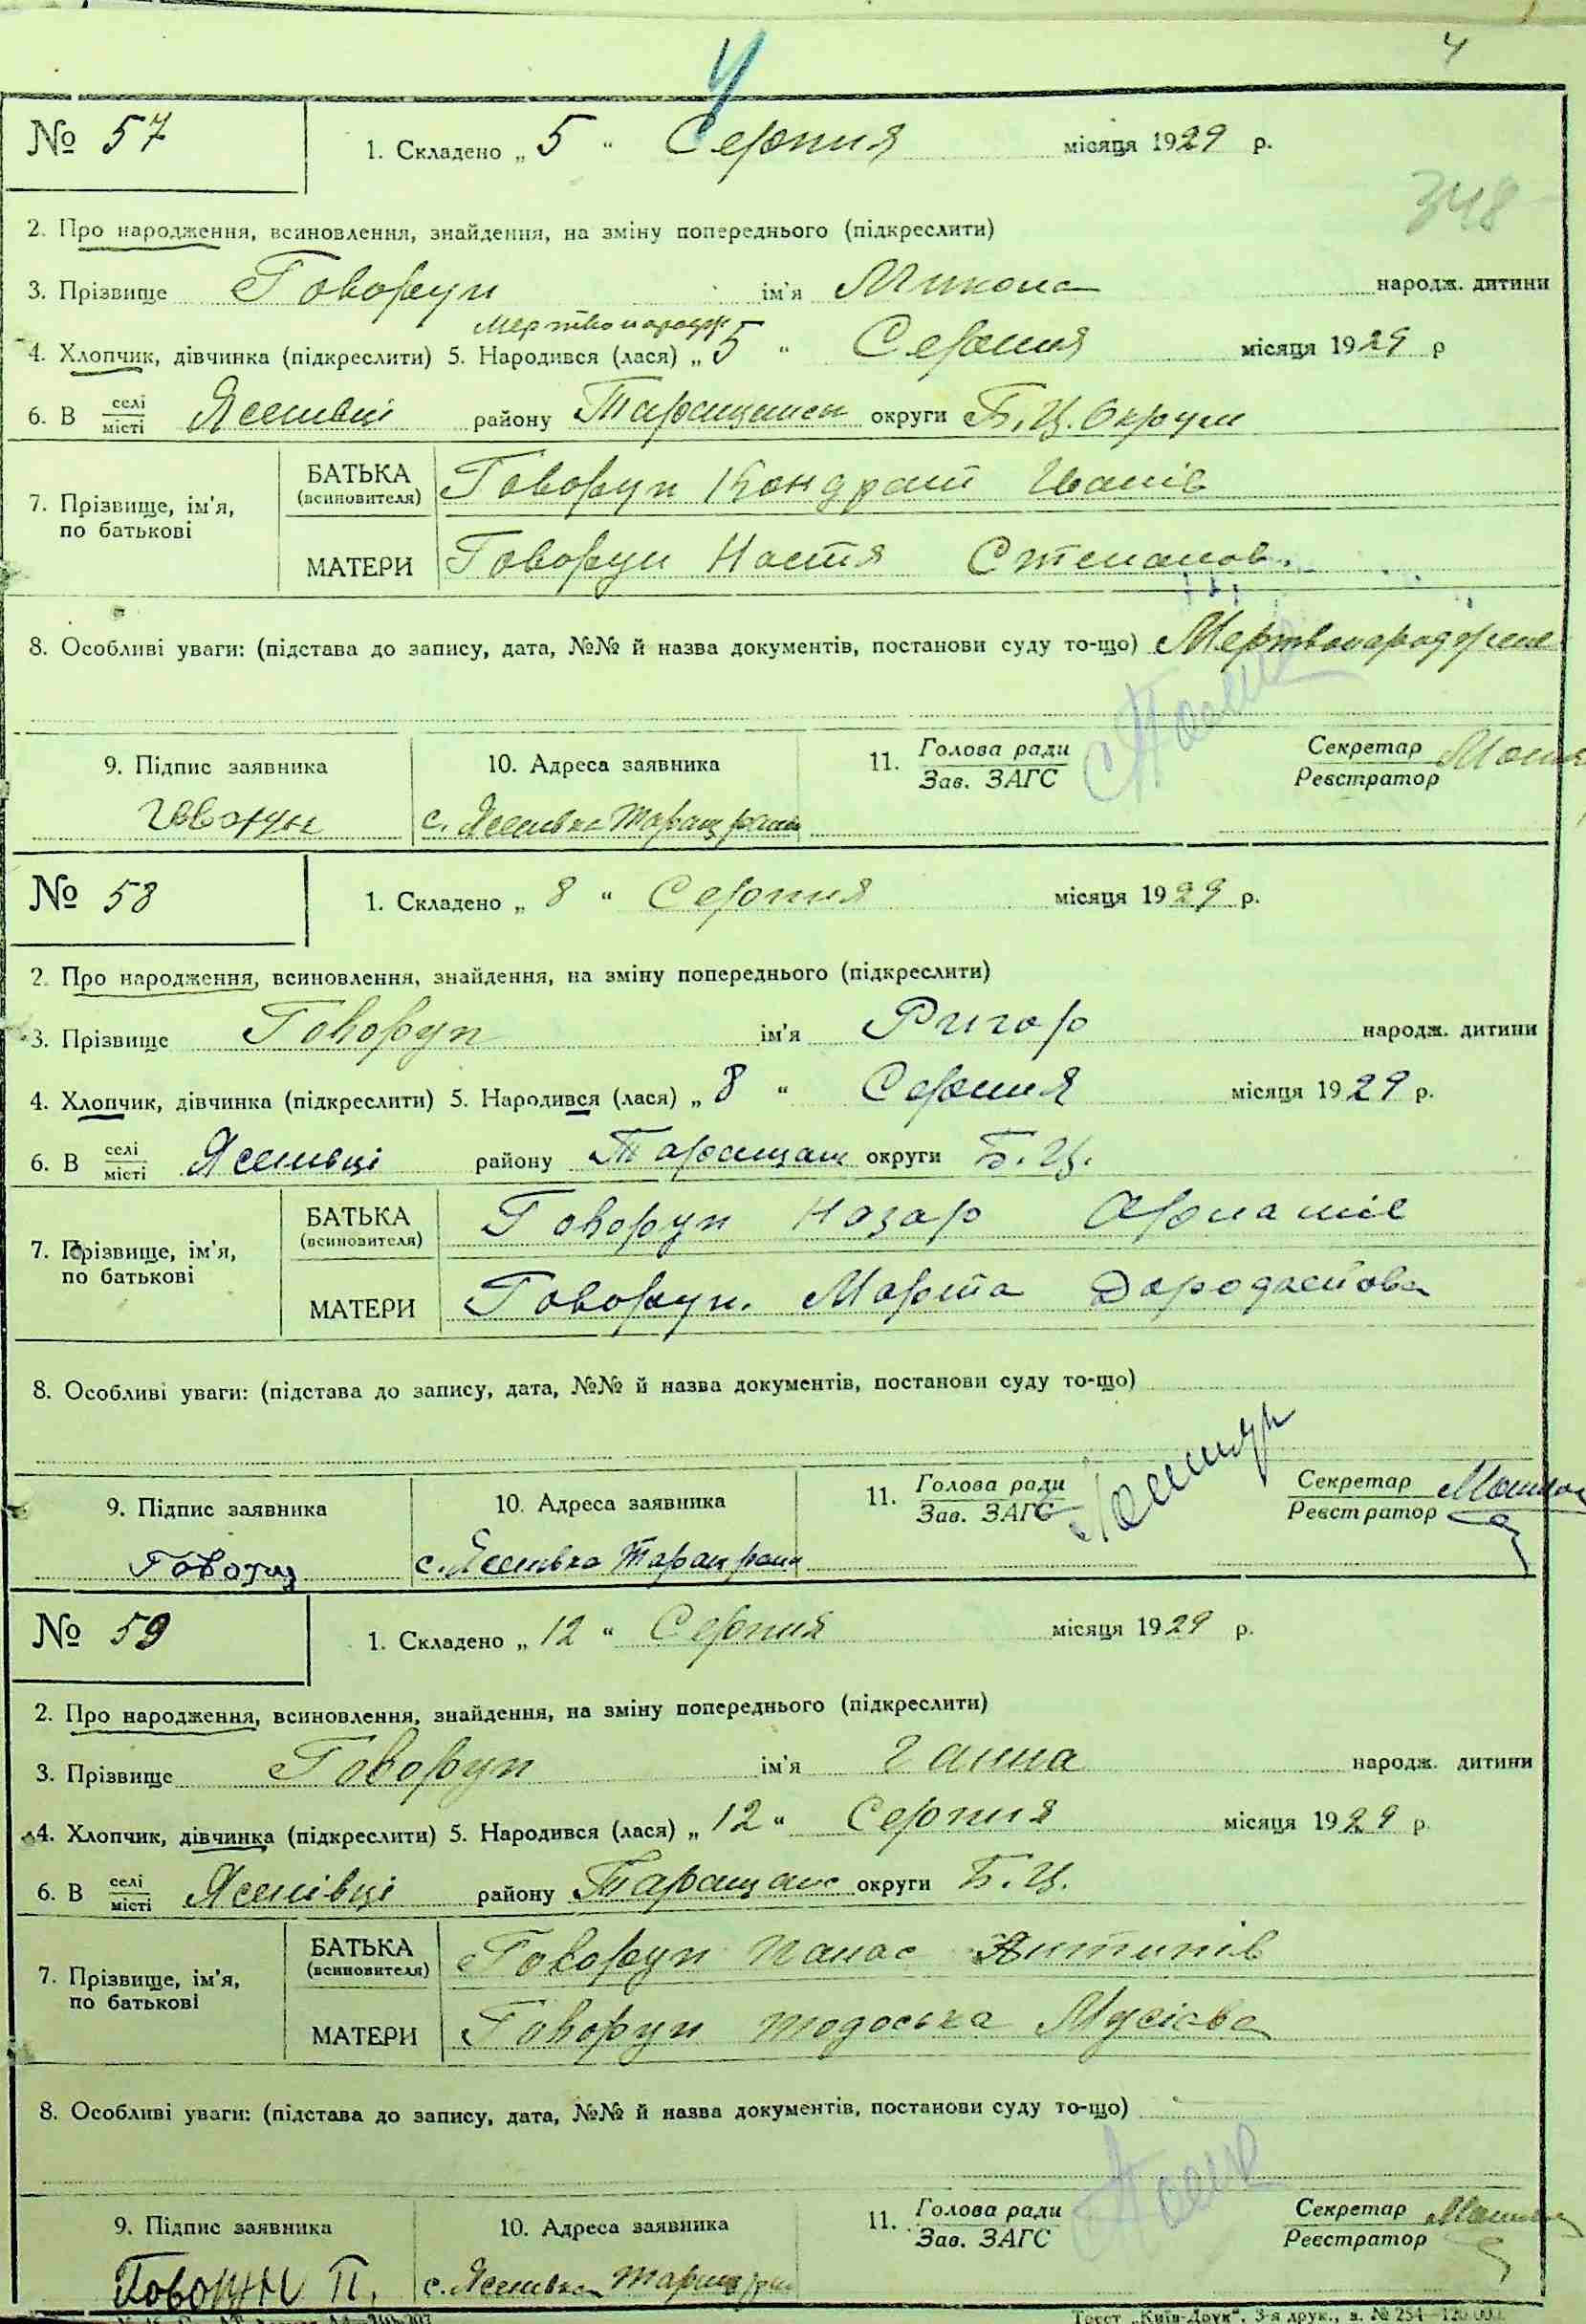 4
4
№ 57
1. Складено „ 5 " Серпня місяця 1929 р.
348
2. Про народження, всиновлення, знайдення, на зміну попереднього (підкреслити)
3. Прізвище Говорун ім'я Микола народж. дитини
Мертвонародж
4. Хлопчик, дівчинка (підкреслити) 5. Народився (лася) „ 5 " Серпня місяця 1929 р
6. В селі/місті Ясенівці району Таращанск округи Б.Ц. Округи
7. Прізвище, ім'я, по батькові
БАТЬКА (всиновителя) Говорун Кондрат Іванів
МАТЕРИ Говорун Настя Степанов.
8. Особливі уваги: (підстава до запису, дата, №№ й назва документів, постанови суду то-що) Мертвонароджене
9. Підпис заявника 10. Адреса заявника 11. Голова ради / Зав. ЗАГС Секретар / Реєстратор
Говорун с. Ясенівка Таращ району
№ 58
1. Складено „ 8 " Серпня місяця 1929 р.
2. Про народження, всиновлення, знайдення, на зміну попереднього (підкреслити)
3. Прізвище Говорун ім'я Ригор народж. дитини
4. Хлопчик, дівчинка (підкреслити) 5. Народився (лася) „ 8 " Серпня місяця 1929 р.
6. В селі/місті Ясенівці району Таращан округи Б.Ц.
7. Прізвище, ім'я, по батькові
БАТЬКА (всиновителя) Говорун Назар
МАТЕРИ Говорун. Марта
8. Особливі уваги: (підстава до запису, дата, №№ й назва документів, постанови суду то-що)
9. Підпис заявника 10. Адреса заявника 11. Голова ради / Зав. ЗАГС Секретар / Реєстратор
Говорун с. Ясенівка Таращ район
№ 59
1. Складено „ 12 " Серпня місяця 1929 р.
2. Про народження, всиновлення, знайдення, на зміну попереднього (підкреслити)
3. Прізвище Говорун ім'я Ганна народж. дитини
4. Хлопчик, дівчинка (підкреслити) 5. Народився (лася) „ 12 " Серпня місяця 1929 р.
6. В селі/місті Ясенівці району Таращанс округи Б.Ц.
7. Прізвище, ім'я, по батькові
БАТЬКА (всиновителя) Говорун Панас Антипів
МАТЕРИ Говорун Тодоська Мусієва
8. Особливі уваги: (підстава до запису, дата, №№ й назва документів, постанови суду то-що)
9. Підпис заявника 10. Адреса заявника 11. Голова ради / Зав. ЗАГС Секретар / Реєстратор
Говорун П. с. Ясенівка Таращ
Трест „Київ-Друк", 3-я друк., з. № 254—120.000.